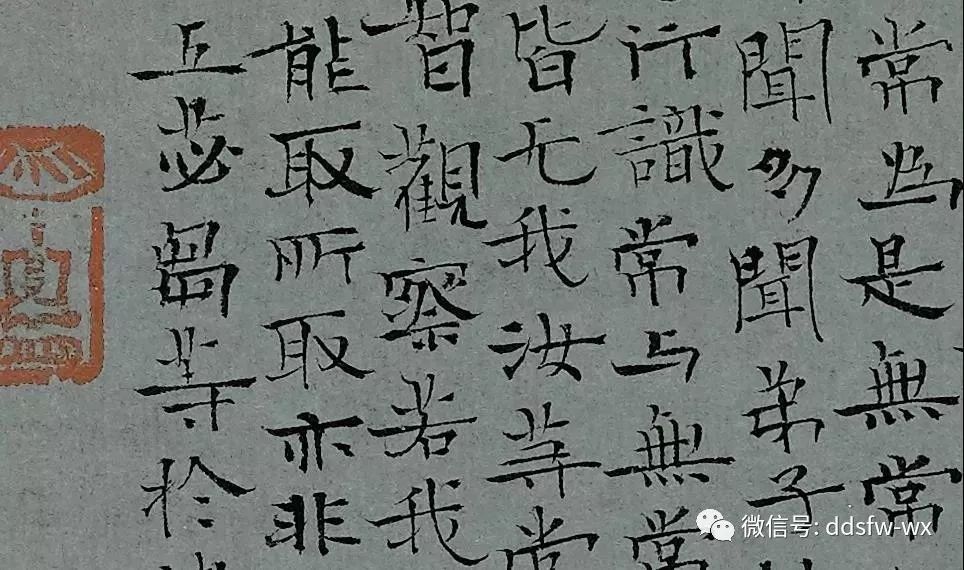 常为是無常
聞多聞弟子
行識常与無常
皆无我汝等當
智觀察若我
能取所取亦非
五苾芻等於
微信号: ddsfw-wx